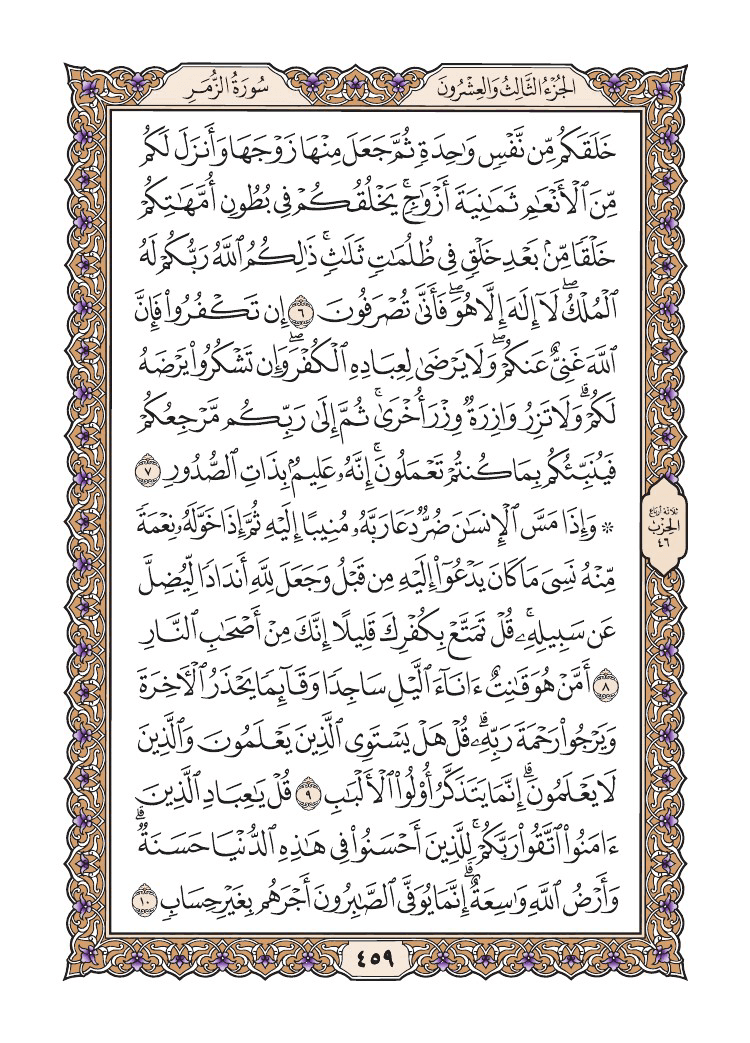 الجُزْءُ الثَّالِثُ وَالعِشْرُونَ
سُورَةُ الزُّمَرِ
خَلَقَكُم مِّن نَّفْسٍ وَٰحِدَةٍ ثُمَّ جَعَلَ مِنْهَا زَوْجَهَا وَأَنزَلَ لَكُم
مِّنَ ٱلْأَنْعَٰمِ ثَمَٰنِيَةَ أَزْوَٰجٍۚ يَخْلُقُكُمْ فِى بُطُونِ أُمَّهَٰتِكُمْ
خَلْقًا مِّنۢ بَعْدِ خَلْقٍ فِى ظُلُمَٰتٍ ثَلَٰثٍۚ ذَٰلِكُمُ ٱللَّهُ رَبُّكُمْ لَهُ
ٱلْمُلْكُۖ لَآ إِلَٰهَ إِلَّا هُوَۖ فَأَنَّىٰ تُصْرَفُونَ ٦ إِن تَكْفُرُوا۟ فَإِنَّ
ٱللَّهَ غَنِىٌّ عَنكُمْۖ وَلَا يَرْضَىٰ لِعِبَادِهِ ٱلْكُفْرَۖ وَإِن تَشْكُرُوا۟ يَرْضَهُ
لَكُمْۗ وَلَا تَزِرُ وَازِرَةٌ وِزْرَ أُخْرَىٰۚ ثُمَّ إِلَىٰ رَبِّكُم مَّرْجِعُكُمْ
فَيُنَبِّئُكُم بِمَا كُنتُمْ تَعْمَلُونَۚ إِنَّهُۥ عَلِيمٌۢ بِذَاتِ ٱلصُّدُورِ ٧
۞ وَإِذَا مَسَّ ٱلْإِنسَٰنَ ضُرٌّ دَعَا رَبَّهُۥ مُنِيبًا إِلَيْهِ ثُمَّ إِذَا خَوَّلَهُۥ نِعْمَةً
مِّنْهُ نَسِىَ مَا كَانَ يَدْعُوٓا۟ إِلَيْهِ مِن قَبْلُ وَجَعَلَ لِلَّهِ أَندَادًا لِّيُضِلَّ
عَن سَبِيلِهِۦۚ قُلْ تَمَتَّعْ بِكُفْرِكَ قَلِيلًا إِنَّكَ مِنْ أَصْحَٰبِ ٱلنَّارِ
٨ أَمَّنْ هُوَ قَٰنِتٌ ءَانَآءَ ٱلَّيْلِ سَاجِدًا وَقَآئِمًا يَحْذَرُ ٱلْءَاخِرَةَ
وَيَرْجُوا۟ رَحْمَةَ رَبِّهِۦۗ قُلْ هَلْ يَسْتَوِى ٱلَّذِينَ يَعْلَمُونَ وَٱلَّذِينَ
لَا يَعْلَمُونَۗ إِنَّمَا يَتَذَكَّرُ أُو۟لُوا۟ ٱلْأَلْبَٰبِ ٩ قُلْ يَٰعِبَادِ ٱلَّذِينَ
ءَامَنُوا۟ ٱتَّقُوا۟ رَبَّكُمْۚ لِلَّذِينَ أَحْسَنُوا۟ فِى هَٰذِهِ ٱلدُّنْيَا حَسَنَةٌۗ
وَأَرْضُ ٱللَّهِ وَٰسِعَةٌۗ إِنَّمَا يُوَفَّى ٱلصَّٰبِرُونَ أَجْرَهُم بِغَيْرِ حِسَابٍ ١٠
ثلاثة أرباع
الحزب
٤٦
٤٥٩